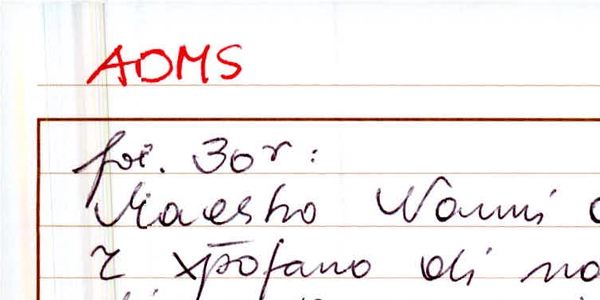 ADMS
fol. 30r:
Maestro Nanni
z xpofano di